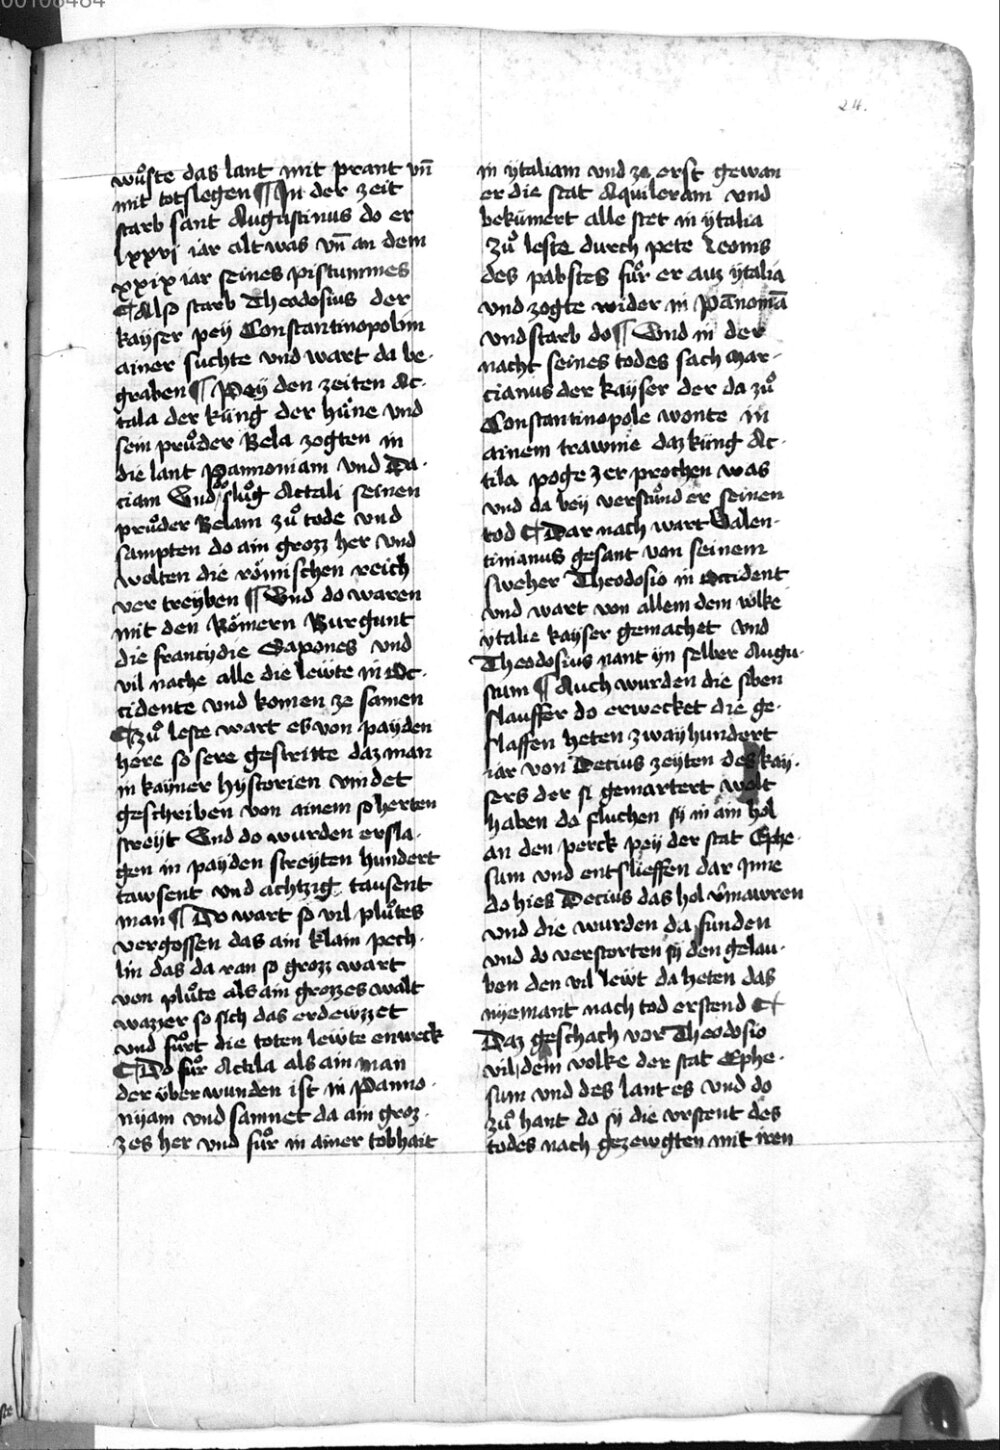 24.
wuͦste das lant mit prant vn̄
mit totslegen ¶ In der zeit
starb sant Augustinus do er
lxxvi iar alt was vn̄ an dem
xxix iar seines pistummes
¶ Also starb Theodosius der
kayser pey Constantinopolim
ainer suchte vnd wart da be-
graben ¶ Pey den zeiten At-
tala der küng der hüne vnd
sein pruͦder Bela zogten in
die lant Pannoniam vnd Da-
ciam Vnd sluͦg Attali seinen
pruͦder Belam zuͦ tode vnd
sampten do ain grozz her vnd
wolten die römischen reich
ver treyben ¶ Vnd do waren
mit den Römern Burgunt
die francij die Saxones vnd
vil nache alle die lewte in Oc-
cidente vnd komen ze samen
¶ zuͦ leste wart es von payden
here so sere gestritte daz man
in kayner hystorien vindet
geschriben von ainem so herten
streyt Vnd do wurden ersla-
gen in payden streyten hundert
tawsent vnd achtzig tausent
man ¶ Do wart so vil pluͦtes
vergossen das ain klain pech-
lin das da ran so grozz wart
von pluͦte als ain grozzes walt
wazzer so sich das erdewzzet
vnd fuͦrt die toten lewte enweck
¶ Do fuͦr Attila als ain man
der überwunden ist in Panno-
nyam vnd samnet da ain groz-
zes her vnd fuͦr in ainer tobhait
in ytaliam vnd ze erst gewan
er die stat Aquileram vnd
bekümert alle stet in ytalia
zuͦ leste durch pete Leonis
des pabstes fuͦr er auz ytalia
vnd zogte wider in Pānoniā
vnd starb do ¶ Vnd in der
nacht seines todes sach Mar-
cianus der kayser der da zuͦ
Constantinopole wonte in
ainem trawme daz küng At-
tila poge zerprochen was
vnd da bey verstuͦnd er seinen
tod ¶ Dar nach wart Valen-
tinianus gesant von seinem
sweher Theodosio in occident
vnd wart von allem dem volke
ytalie kayser gemachet vnd
Theodosius nant yn selber Augu-
stum ¶ Auch wurden die siben
slauffer do erwecket die ge-
slaffen heten zway hundert
iar von Decius zeyten des kay-
sers der si gemartert wolt
haben do fluchen sy in ain hol
an den perck pey der stat Ephe-
sum vnd entslieffen dar Inne
do hies Decius das hol vm̄awren
und die wurden da funden
vnd do verstorten sy den gelau-
ben den vil lewt da heten das
nyemant nach tod erstend ¶
Daz geschach vor Theodosio
vil dem volke der stat Ephe-
sum vnd des lantes vnd do
zuͦ hant do sy die vrstent des
todes nach gezewgten mit iren